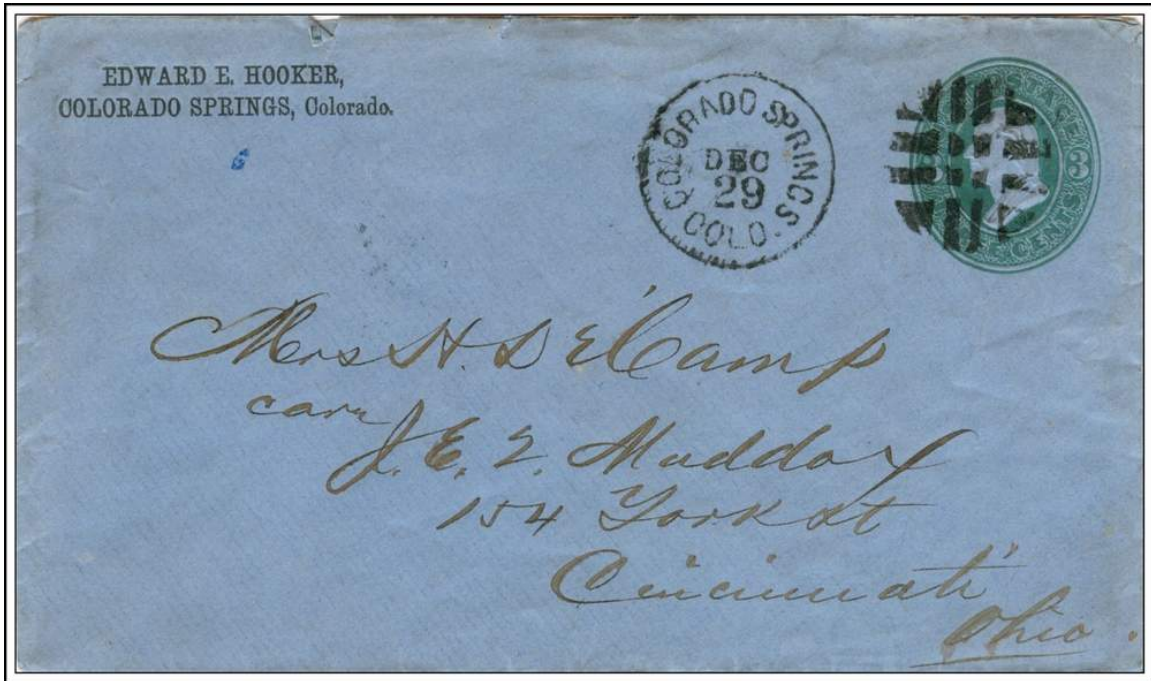 EDWARD E. HOOKER,
COLORADO SPRINGS, Colorado.
COLORADO SPRINGS
DEC
29
COLO.
POSTAGE
3
CENTS
Mrs H. DeCamp
care
J. E. Maddox
154 York st
Cincinnati
Ohio.